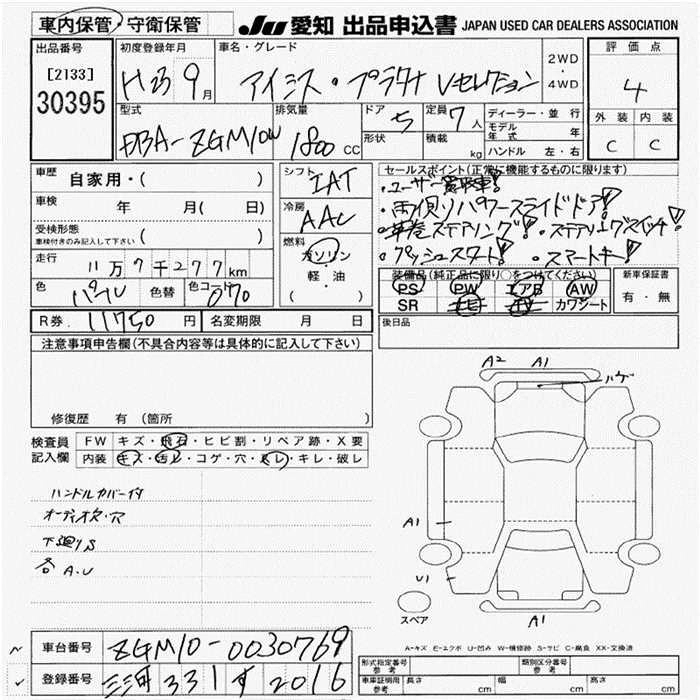 車内保管・守衛保管
JU 愛知 出品申込書 JAPAN USED CAR DEALERS ASSOCIATION
出品番号
[2133]
30395
初度登録年月
H23 9月
車名・グレード
アイシス・プラタナ Vセレクション
2WD
・
4WD
評価点
4
外装 内装
C C
型式
DBA-ZGM10W
排気量
1800 CC
ドア 5
形状
定員 7人
積載 kg
ディーラー・並行
モデル年式 年
ハンドル 左・右
車歴 自家用・( )
車検 年 月( 日)
受検形態
車検付きのみ記入して下さい ( )
走行 11万7千277km
色 パール 色替 色コード 070
シフト IAT
冷房 AAC
燃料
ガソリン
・
軽・油
( )
セールスポイント(正常に機能するものに限ります)
・ユーザー買取車!
・両側パワースライドドア!
・革巻ステアリング! ・ステアリングスイッチ!
・プッシュスタート! ・スマートキー!
装備品(純正品に限り○をつけてください)
PS PW エアB AW
SR ナビ TV カワシート
新車保証書
有・無
後日品
R券 11750円 名変期限 月 日
注意事項申告欄(不具合内容等は具体的に記入して下さい)
修復歴 有 (箇所 )
検査員記入欄
FW キズ・飛石・ヒビ割・リペア跡・X要
内装 キズ・汚レ・コゲ・穴・スレ・キレ・破レ
ハンドルカバー付
オーディオ欠・穴
下廻りS
各A.U
A2 A1
ハゲ
A1
U1
A1
スペア
A-キズ E-エクボ U-凹み W-補修跡 S-サビ C-腐食 XX-交換済
車台番号 ZGM10-0030769
登録番号 三河 331 す 2016
形式指定番号 参考
類別区分番号 参考
車庫証明用 参考 長さ cm 幅 cm 高さ cm